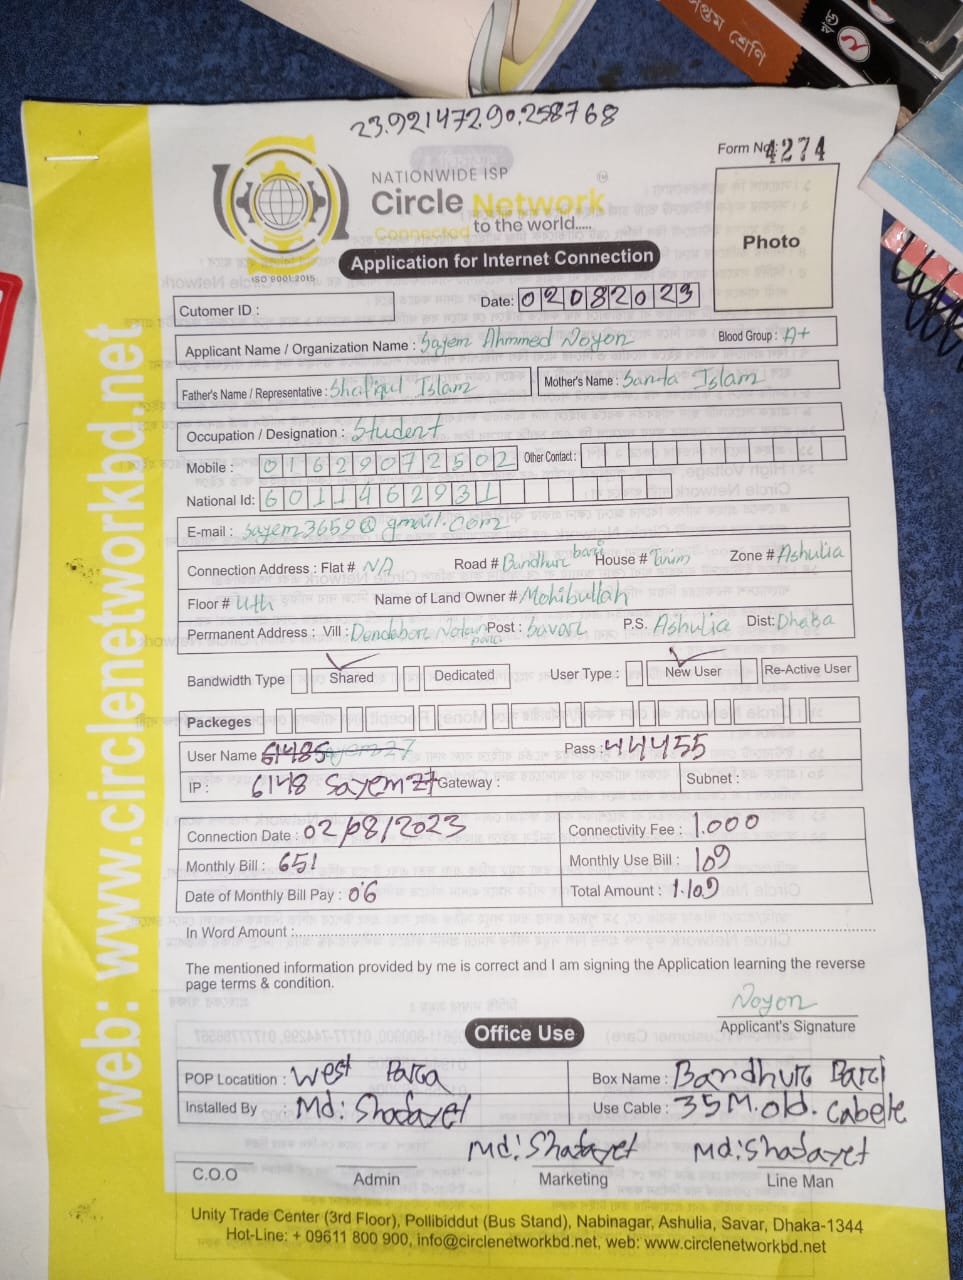 সপ্তম শ্রেণি
23.921472.90.258768
Form No. 4274
NATIONWIDE ISP
Circle Network
Connected to the world.....
ISO 9001:2015
Photo
Application for Internet Connection
Cutomer ID : Date: 02082023
Applicant Name / Organization Name : Sayem Ahmmed Noyon Blood Group : A+
Father's Name / Representative : Shafiqul Islam Mother's Name : Islam
Occupation / Designation : Student
Mobile : 01629072502 Other Contact :
National Id: 6011462931
E-mail : sayem3659@gmail.com
Connection Address : Flat # NA Road # Bandhur bari House # Zone # Ashulia
Floor # uth Name of Land Owner # Mohibullah
Permanent Address : Vill : Post : Savar P.S. Ashulia Dist: Dhaka
Bandwidth Type Shared Dedicated User Type : New User Re-Active User
Packeges
User Name Pass : 44455
IP : 6148 Sayem27 Gateway : Subnet :
Connection Date : 02/08/2023 Connectivity Fee : 1.000
Monthly Bill : 651 Monthly Use Bill : 109
Date of Monthly Bill Pay : 06 Total Amount : 1.109
In Word Amount :
The mentioned information provided by me is correct and I am signing the Application learning the reverse
page terms & condition.
Noyon
Applicant's Signature
Office Use
POP Locatition : West Para Box Name : Bandhur Bari
Installed By : Md: Shafayet Use Cable : 35M. old. Cabele
Md: Shafayet Md: Shafayet
C.O.O Admin Marketing Line Man
Unity Trade Center (3rd Floor), Pollibiddut (Bus Stand), Nabinagar, Ashulia, Savar, Dhaka-1344
Hot-Line: + 09611 800 900, info@circlenetworkbd.net, web: www.circlenetworkbd.net
web: www.circlenetworkbd.net